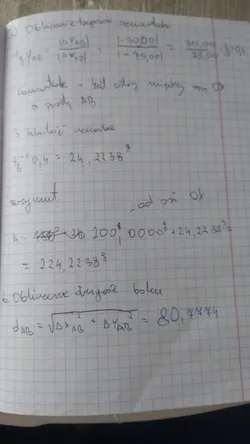 a) Obliczenie tangensa czwartaka
tg φAB = |ΔYAB| / |ΔXAB| = |-30,00| / |-75,00| = 30,00 / 75,00 = 0,4
czwartak - kąt ostry między osią OX
a prostą AB
3. Wartość czwartaka
tg⁻¹ 0,4 = 24,2238ᵍ
azymut - od osi OX
A = 200ᵍ,0000ᵍ + 24,2238ᵍ =
= 224,2238ᵍ
6. Obliczenie długości boku
dAB = √ΔX²AB + ΔY²AB = 80,7774